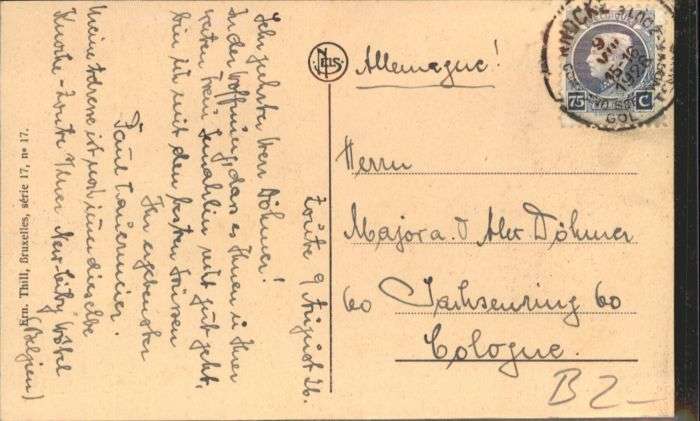 Zoute 9 August 26.
Sehr geehrter Herr Döhmer!
In der Hoffnung, dass es Ihnen u Ihrer
werten Frau Gemahlin recht gut geht,
bin ich mit den besten Grüssen
Ihr ergebenster
Paul
Meine Adresse ist noch immer dieselbe
Knocke-Zoute Hôtel
(Belgien)
Ern. Thill, Bruxelles, série 17, nº 17.
Allemagne!
KNOCKE
1926
75 C
Herrn
Major a. D Alex Döhmer
60 Sachsenring 60
Cologne.
B 2-